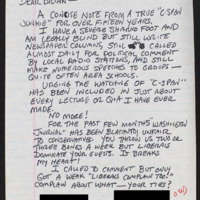 DEAR BRIAN:
A CONCISE NOTE FROM A TRUE "C-SPAN
JUNKIE" FOR OVER FIFTEEN YEARS.
I HAVE A SEVERE SHAKING FOOT AND
AM LEGALLY BLIND BUT STILL WRITE
NEWSPAPER COLUMNS, STILL CALLED
ALMOST DAILY FOR POLITICAL COMMENT
BY LOCAL RADIO STATIONS, AND STILL
MAKE NUMEROUS SPEECHES TO GROUPS -
QUITE OFTEN AREA SCHOOLS.
URGING THE WATCHING OF "C-SPAN"
HAS BEEN INCLUDED IN JUST ABOUT
EVERY LECTURE OR Q&A I HAVE EVER
MADE.
NO MORE!
FOR THE PAST FEW MONTHS WASHINGTON
JOURNAL HAS BEEN BLATANTLY UNFAIR
TO CONSERVATIVES. YOU THROW US TWO OR
THREE BONES A WEEK BUT LIBERALS
DOMINATE YOUR GUESTS. IT BREAKS
MY HEART!
I CALLED TO COMMENT BUT ONLY
GOT A WEEK "LIBERALS COMPLAIN TOO."
COMPLAIN ABOUT WHAT - YOUR TIES?